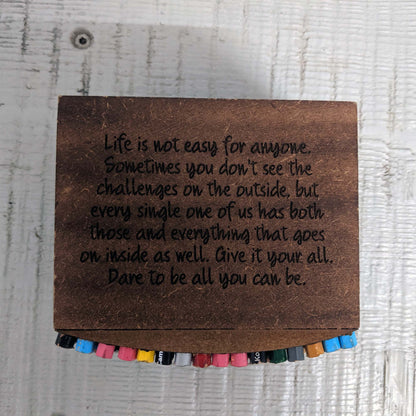 Life is not easy for anyone.
Sometimes you don't see the
challenges on the outside, but
every single one of us has both
those and everything that goes
on inside as well. Give it your all.
Dare to be all you can be.